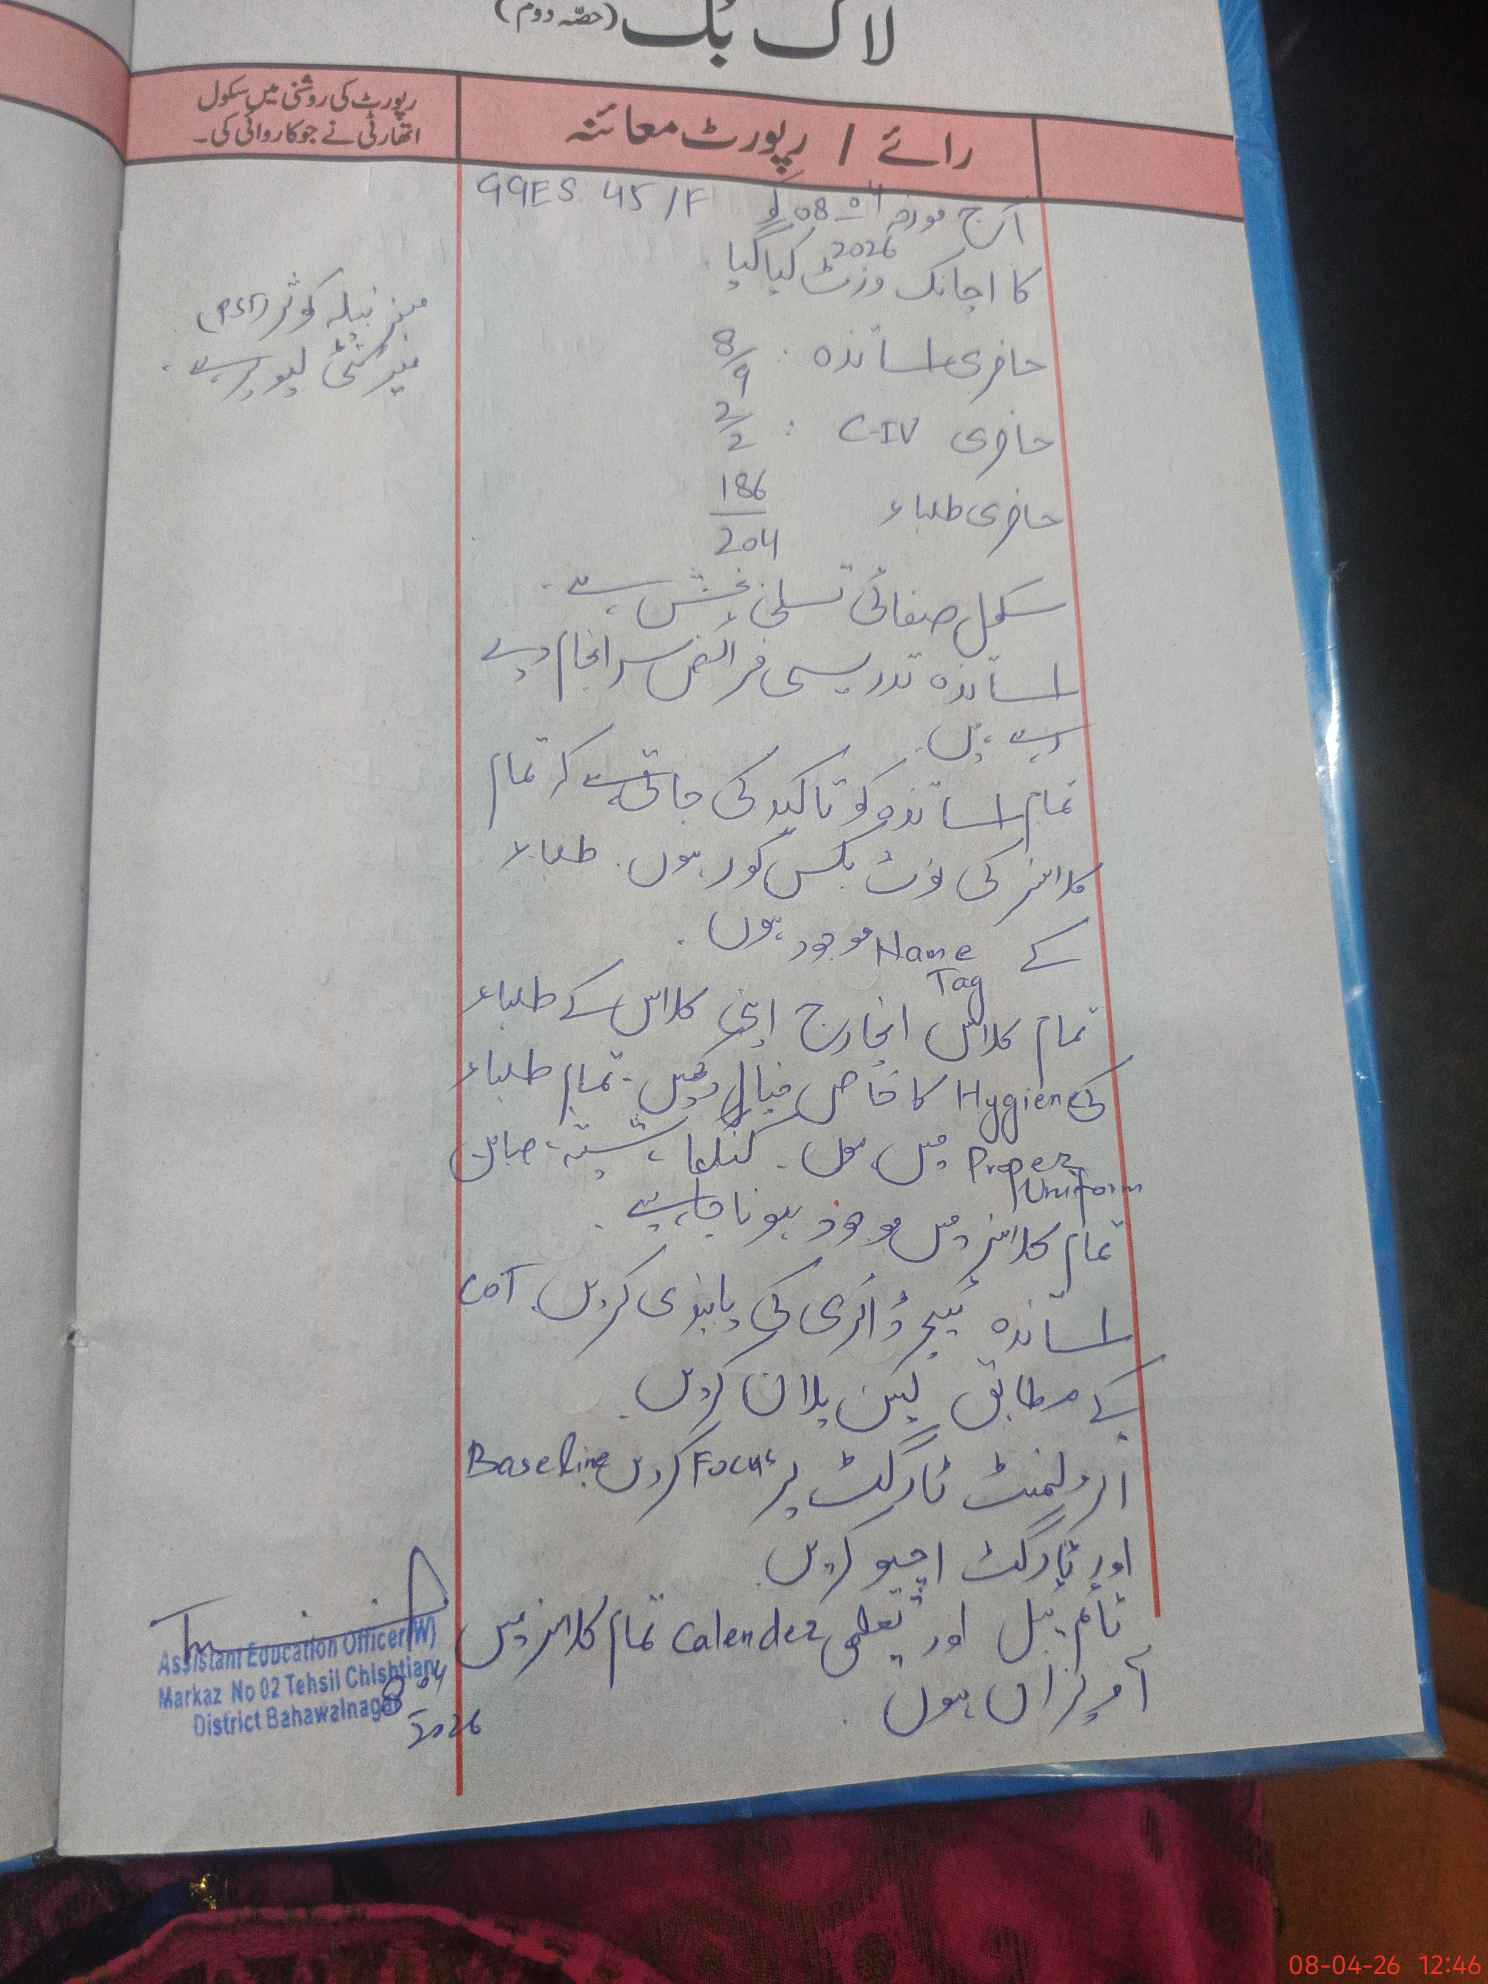 لاگ بک (حصّہ دوم)
رائے / رپورٹ معائنہ
رپورٹ کی روشنی میں سکول
اتھارٹی نے جو کاروائی کی۔
آج مورخہ 08-04-2026 کو GGES 45/F
کا اچانک وزٹ کیا گیا۔
حاضری اساتذہ : 8/9
حاضری C-IV : 2/2
حاضری طلباء 186/204
سکول صفائی تسلی بخش ہے۔
اساتذہ تدریسی فرائض سرانجام دے
رہے ہیں۔
تمام اساتذہ کو تاکید کی جاتی ہے کہ تمام
کلاسز کی نوٹ بکس کور ہوں۔ طلباء
کے Name Tag موجود ہوں۔
تمام کلاس انچارج اپنی کلاس کے طلباء
کی Hygien کا خاص خیال رکھیں۔ تمام طلباء
Proper Uniform میں ہوں۔ کنگھا، شیشہ، صابن
تمام کلاسز میں موجود ہونا چاہیے۔
اساتذہ ٹیچر ڈائری کی پابندی کریں۔ COT
کے مطابق لیسن پلان کریں۔
انرولمنٹ ٹارگٹ پر Focus کریں۔ Baseline
اور ٹارگٹ اچیو کریں۔
ٹائم ٹیبل اور تعلیمی Calender تمام کلاسز میں
آویزاں ہوں۔
مسز نبیلہ کوثر (PST)
میٹرنٹی لیو پر ہے۔
Assistant Education Officer (W)
Markaz No 02 Tehsil Chishtian
District Bahawalnagar
8-04
2026
08-04-26 12:46